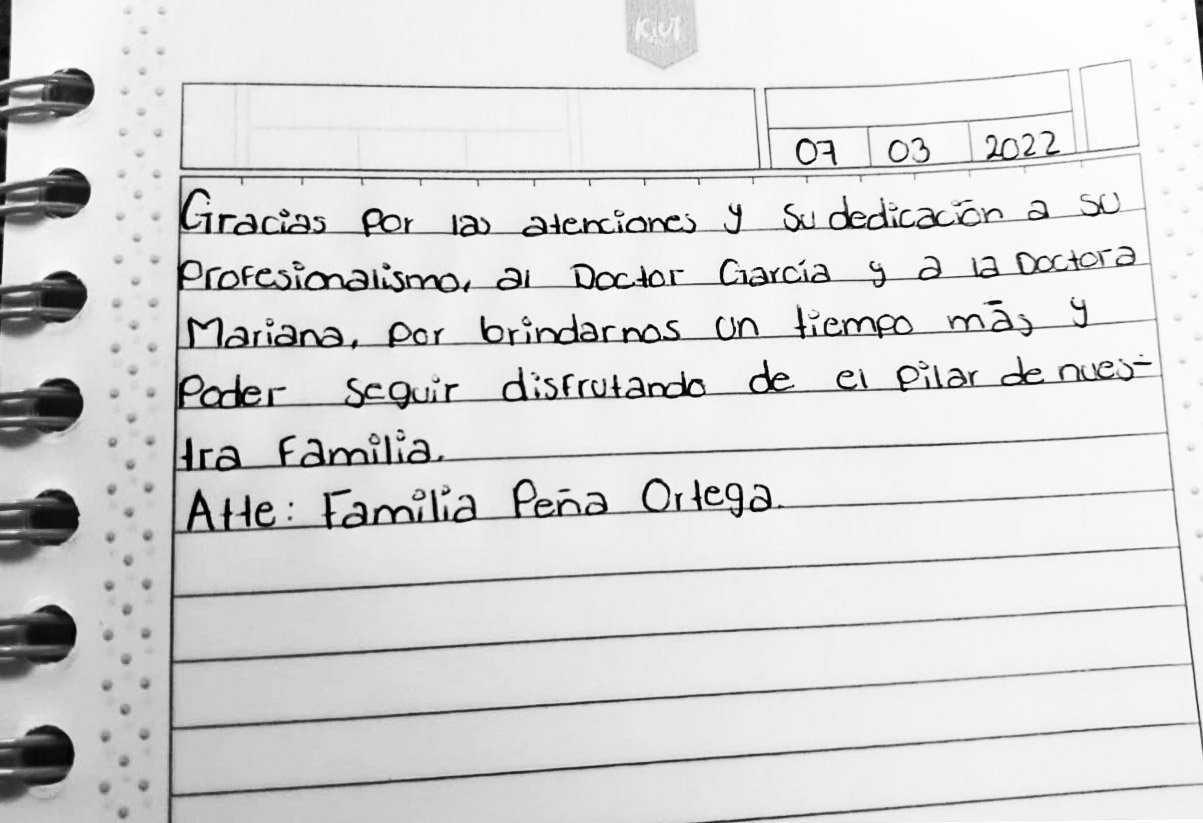 Kiut
07 03 2022
Gracias por las atenciones y su dedicación a su
Profesionalismo, al Doctor García y a la Doctora
Mariana, por brindarnos un tiempo más y
Poder seguir disfrutando de el pilar de nues-
tra Familia.
Atte: Familia Peña Ortega.